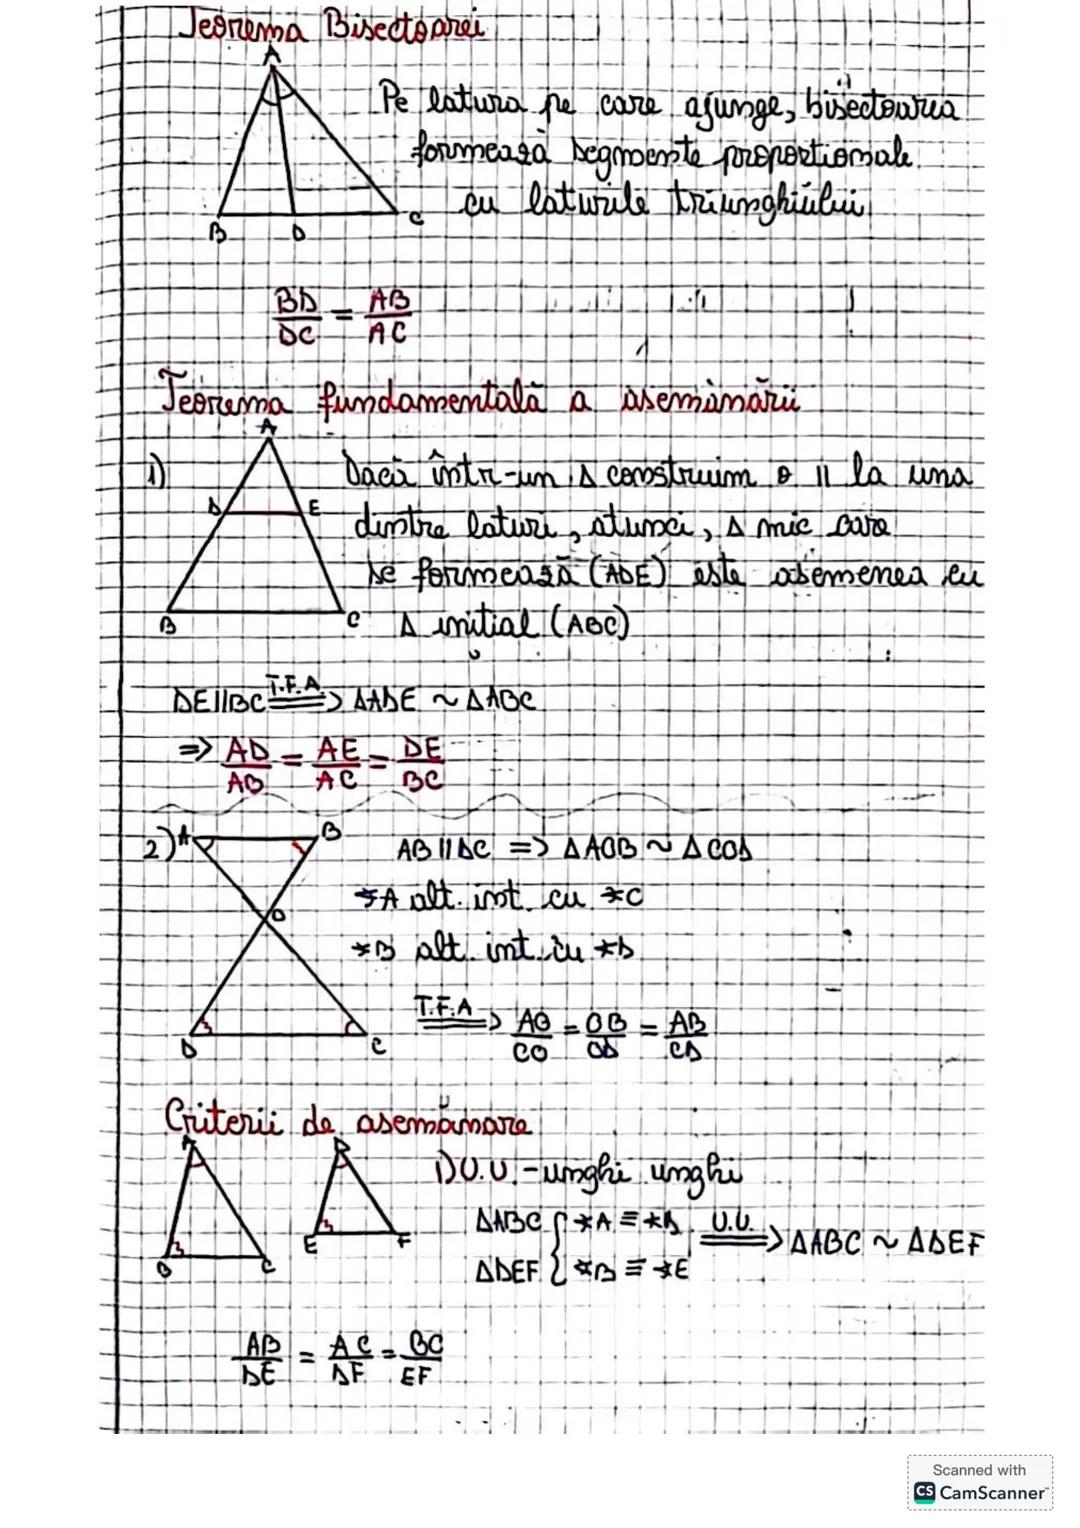 Teorema Bisectoarei
A
Pe latura pe care ajunge, bisectoarea
formează segmente proporționale
cu laturile triunghiului
B D C
BD/DC = AB/AC
Teorema fundamentală a asemănării
A
1) Dacă într-un Δ construim o || la una
D E dintre laturi, atunci, Δ mic care
se formează (ADE) este asemenea cu
B C Δ inițial (ABC)
DE||BC T.F.A. => ΔADE ~ ΔABC
=> AD/AB = AE/AC = DE/BC
2) A B AB || DC => ΔAOB ~ ΔCOD
∢A alt. int. cu ∢C
O
∢B alt. int. cu ∢D
T.F.A => AO/CO = OB/OD = AB/CD
D C
Criterii de asemănare
A D 1) U.U. - unghi unghi
ΔABC { ∢A ≡ ∢D U.U. => ΔABC ~ ΔDEF
E F
ΔDEF { ∢B ≡ ∢E
B C
AB/DE = AC/DF = BC/EF
Scanned with
CS CamScanner